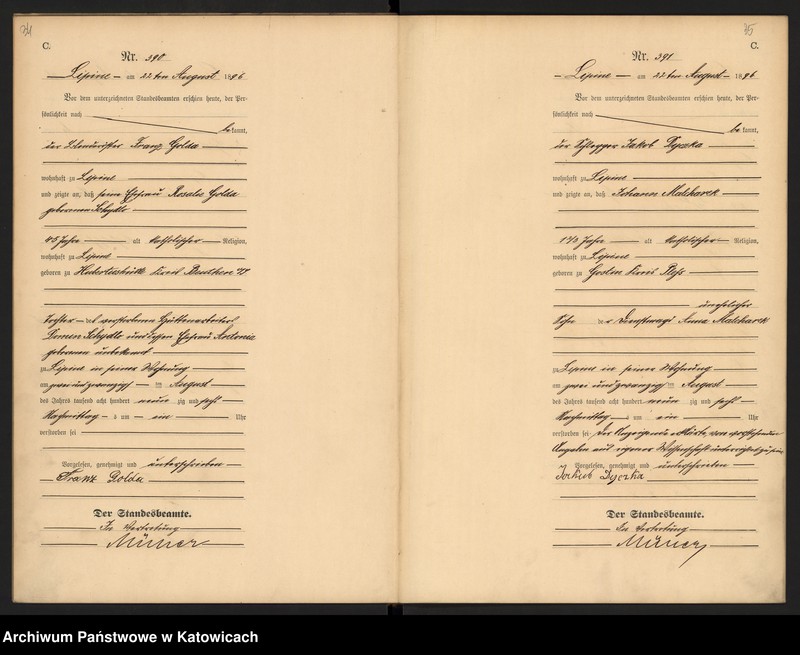 34
C.
Nr. 390
Lipine am 22ten August 1896
Vor dem unterzeichneten Standesbeamten erschien heute, der Per-
sönlichkeit nach
bekannt,
der Franz Golda
wohnhaft zu Lipine
und zeigte an, daß seine Ehefrau Rosalie Golda
geborenen Schydlo
45 Jahre alt katholischer Religion,
wohnhaft zu Lipine
geboren zu Hubertushütte Kreis Beuthen
Tochter des verstorbenen Hüttenarbeiters
Schydlo und dessen Ehefrau Antonie
geborenen unbekannt
zu Lipine in seiner Wohnung
am zwei und zwanzigsten August
des Jahres tausend acht hundert neun zig und sechs
Nachmittag um ein Uhr
verstorben sei
Vorgelesen, genehmigt und unterschrieben
Franz Golda
Der Standesbeamte.
In Vertretung
Müller
35
C.
Nr. 391
Lipine am 22ten August 1896
Vor dem unterzeichneten Standesbeamten erschien heute, der Per-
sönlichkeit nach
bekannt,
der Schlepper Jakob Dyczka
wohnhaft zu Lipine
und zeigte an, daß Johann Malcharek
Jahre alt katholischer Religion,
wohnhaft zu Lipine
geboren zu Kreis Pleß
unehelicher
Sohn der Dienstmagd Anna Malcharek
zu Lipine in seiner Wohnung
am zwei und zwanzigsten August
des Jahres tausend acht hundert neun zig und sechs
Nachmittag um ein Uhr
verstorben sei. Der Anzeigende erklärte, von vorstehenden
Angaben aus eigener Wissenschaft unterrichtet zu sein
Vorgelesen, genehmigt und unterschrieben
Jackub Dyczka
Der Standesbeamte.
In Vertretung
Müller
Archiwum Państwowe w Katowicach